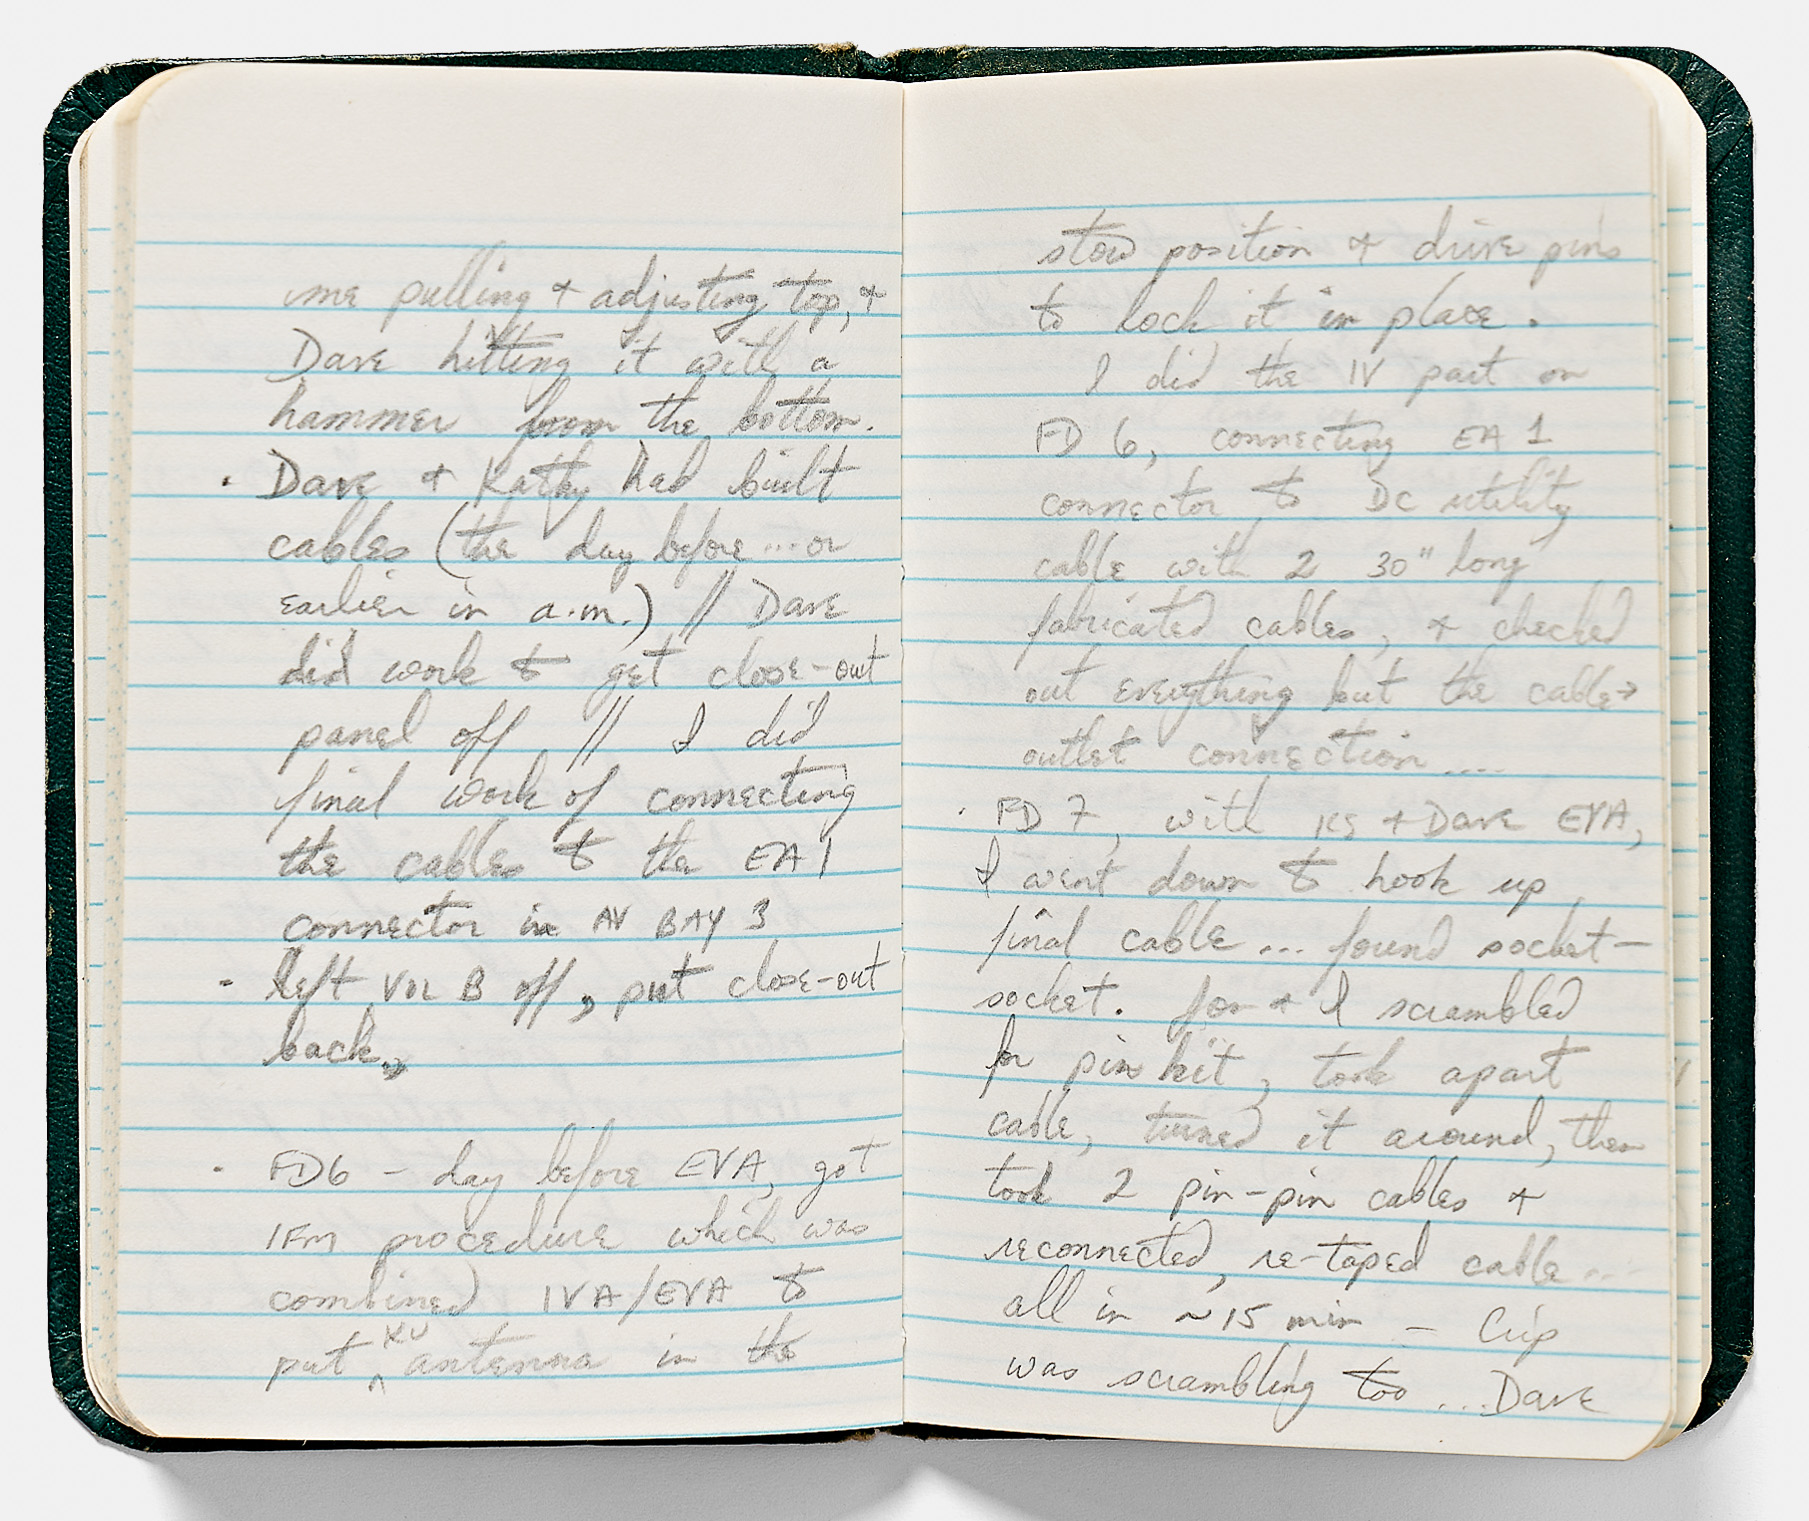 me pulling + adjusting top, +
Dave hitting it with a
hammer from the bottom.
· Dave + Kathy had built
cables (the day before ... or
earlier in a.m.) // Dave
did work to get close-out
panel off // I did
final work of connecting
the cables to the EA1
connector in AV BAY 3
- left Vol B off, put close-out
back.
· FD6 - day before EVA, got
IFM procedure which was
combined IVA/EVA to
put ^KU antenna in the
stow position + drive pins
to lock it in place.
I did the IV part on
FD 6, connecting EA 1
connector to DC utility
cable with 2 30" long
fabricated cables, + checked
out everything but the cable→
outlet connection ....
· FD 7, with KS + Dave EVA,
I went down to hook up
final cable ... found socket-
socket. Jon + I scrambled
for pin kit, took apart
cable, turned it around, then
took 2 pin-pin cables +
reconnected, re-taped cable ..
all in ~15 min - Crip
was scrambling too ... Dave